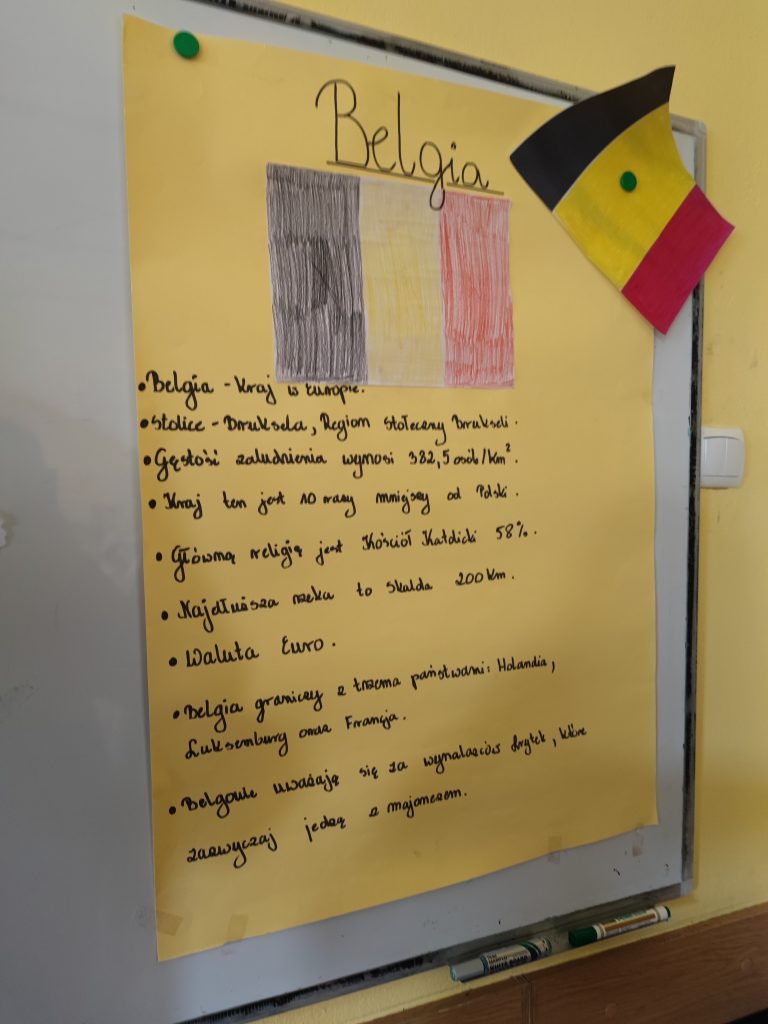 Belgia
•Belgia - Kraj w Europie.
•Stolice - Bruksela, Region Stołeczny Brukseli.
•Gęstość zaludnienia wynosi 382,5 osób/km².
•Kraj ten jest 10 razy mniejszy od Polski.
•Główną religią jest Kościół Katolicki 58%.
•Najdłuższa rzeka to Skalda 200 km.
•Waluta Euro.
•Belgia graniczy z trzema państwami: Holandia,
Luksemburg oraz Francja.
•Belgowie uważają się za wynalazców frytek, które
zazwyczaj jedzą z majonezem.
WHITE BOARD